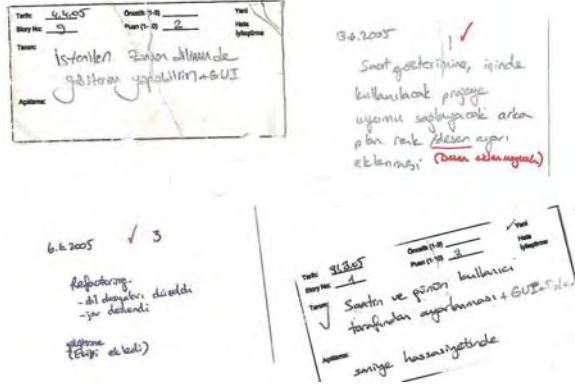 Tarih: 4.4.05 Öncelik (1-3) Yeni
Story No: 9 Puan (1-10) 2 Hata
İyileştirme
Tanım: İstenilen zaman diliminde
gösterim yapabilsin + GUI
Açıklama:
13.6.2005 1 ✓
Saat gösterimine, içinde
kullanılacak projeye
uyumu sağlayacak arka
plan renk /desen ayarı
eklenmesi (Desen eklenmeyecek)
6.6.2005 ✓ 3
Refactoring.
- dil dosyaları düzeldi
- jar destendi
(Ekibi ekledi)
Tarih: Öncelik (1-3) ✓ Yeni
Story No: 1 Puan (1-10) 2 Hata
İyileştirme
Tanım: Saatin ve günün kullanıcı
tarafından ayarlanması + GUI
Açıklama:
saniye hassasiyetinde